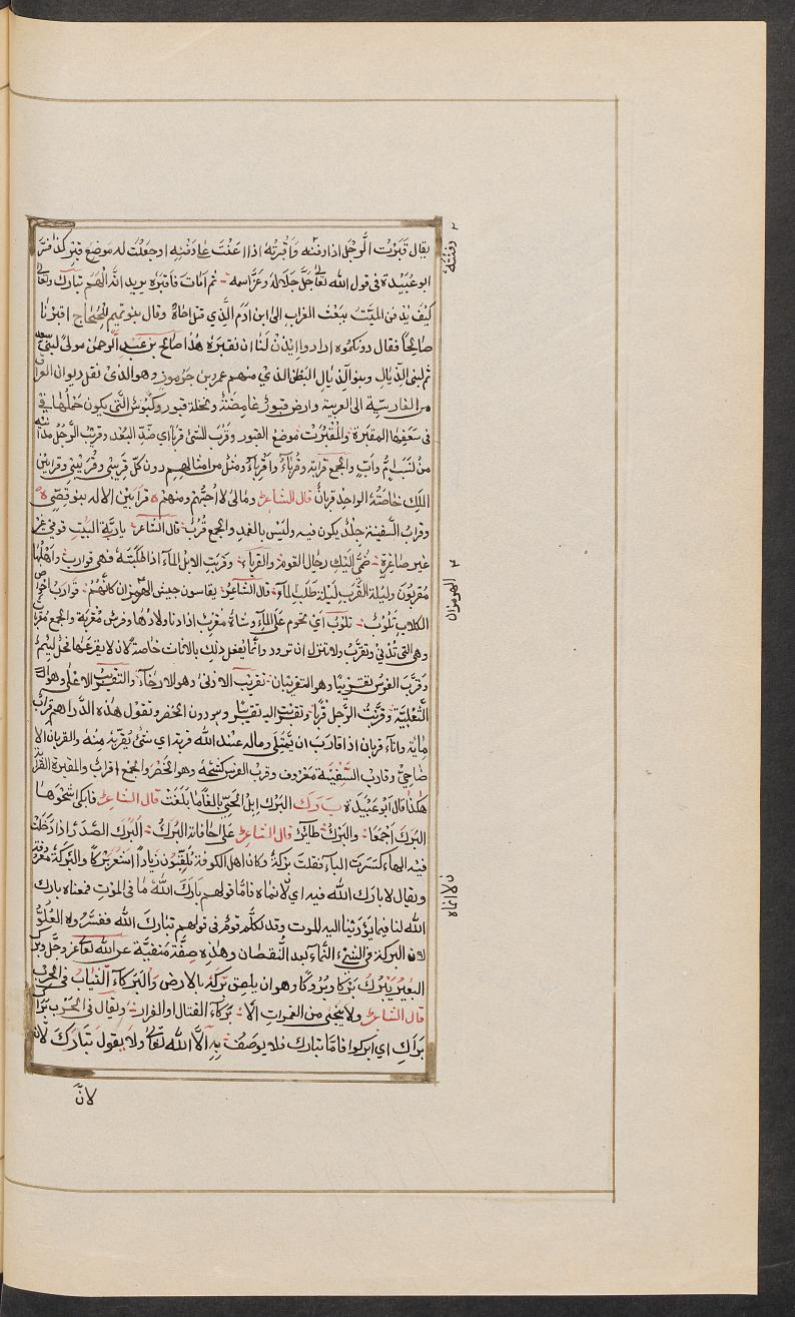 يقال قَبَرْت الرَّجُل اذا دفنه وَاَقْبرتُه اذا اَعَنْتَ عَلى دَفْنِه او جَعَلْتَ له مَوضع قبرٍ كذا فسَّر
ابو عُبَيْدة في قول الله تعالى جَلَّ جَلَاله وَعَزَّ اسمه ثم اَمَاتَه فَاَقبَرَه يريد انَّه اَلهَم تبارك وتعالى
كَيْفَ يُدْفَن الميّت ببَعْث الغراب الى ابن اٰدَم الَّذي قتل اخاهُ وقال بنو تميم للحَجّاج اقبرنا
صَالحًا فقال دونكموه ارادوا ايذَنْ لنَا ان نقبرَهُ هٰذا صَالح بن عَبد الرحمٰن مولىً لبني سعد
ثم لبني الذيّال وبنو الذيّال البَطْن الذي منهم عمرو بن جَرموز وهو الذي نقل ديوان العراق
من الفارسيّة الى العربية وارض قبورٌ غامِضَةٌ ونخلة قبور وكَبُوس الَّتي يكون حَمْلُها في
في سَعَفها المقبَرة والمَقْبُرَة موضع القبور وقَرُبَ الشئ قربًا اي ضدّ البُعْد وقريبُ الرَّجُل مُدَانيه
من نسَبِ امٍّ واَبٍ والجمع قرابة وقُرَباءُ واَقْرِباءُ ومثل من امثالهم دون كلّ قريبى وقُرْبَى وقرابين
الملك خاصّته الواحد قربانٌ قال الشاعر وَمَالِيَ لا اُحبُّهم ومنهم قرابين الاله بنو قصيّ
وقِراب السَّفينة جِلْدٌ يكون فيه وليْس بالغِمد والجمع قُرُبٌ قال الشاعر يا ربّة البَيتِ قومي غَيْرَ
غير صَاغِرةٍ ضُمّي اِلَيْك رحال القوم والقُرُبَا وقَرَبَتِ الابلُ الماءَ اذا طلبَتْهُ فهي قواربُ واَهْلُها
مُقْرِبُونَ وليلة القَرَبِ لَيْلة طَلَب الماء قال الشاعر يقاسون جيش الهرمزان كانّهم قَوارِبُ احواض
الكلابِ تلُوبُ تلوبُ اي تحوم عَلَى الماء وشاةٌ مُقرِبٌ اذا دنا وِلادُها وفرسٌ مُقرَبة والجمع مُقرَبات
وهي التي تُدْنى وتُقرَّبُ ولا تتركُ ان ترودَ وانّما يُفعل ذلِك بالاناث خاصّة لان لا يقرعَها فحل لئيمٌ
وقَرَّبَ الفَرَسُ تقريبًا وهو التقريبان تقريب الادنىٰ وهو الارخاء والتقريب الاعلى وهو
الثَّعْلبيّة وقرّبْتُ الرجل وتقرّبت اليه وتقول هٰذه الدراهم قراب
مايةٍ وانآء قربان اذا قارَبَ ان يمتلئ وماله عند الله قربة اي شئ يُقرّبهُ منه والقربان الا
ضاحِيُّ وقارب السَّفينة مَعْروف وقرب الفرس كشحه وهو الخَصر والجمع اقرابٌ والمقبرة القرية
هٰكذا قال اَبو عبَيدة بَارَك البَرْك ابلُ الحَيّ بالغًا مَا بَلَغَتْ قال الشاعر فابكى شجوها
البَرْكَ اَجْمَعَا والبُرَكُ طائرٌ قال الشاعر عَلى حافاتِه البُرَكُ البَرك الصَّدر اذا دَخلَت
فيه الهاء كسَرتَ الباءَ فقلت بِركةٌ وكان اهل الكوفة يُلقّبون زيادًا اشعرَ بَرْكًا والبِركة معروفة
ويقال لا بارك الله فيه اي لا نماه فامّا قولهم بارَكَ الله لنا في المَوْتِ فمعناه بارك
الله لنا فيما يؤدينا اليه الموت وقد تكلّم قوم في قولهم تبارك الله ففسّروه العُلُوّ
لان البركة في الشئ النّماء بعد النُّقصان وهٰذه صِفَة مَنفيَّة عن الله تعالى عزّ وجلّ وبَرَك
البعيرُ يَبْرُكُ بَرْكًا وبُرُوكًا وهو ان يلصِق بركهُ بالارض وَالبَرَكاءُ الثبات في الحرب
قال الشاعر ولا يُنجي من الغمَراتِ الّا بَرَكاءُ القتال او الفرار ويقال في الحرب بَرَاكِ
بَرَاكِ اي ابركوا فامّا تبارك فلا يوصَف به الّا الله تعالى ولا يقولَ تبَارَكَ فلان
لانّ
دفنته
الهرمزان
لا انماه